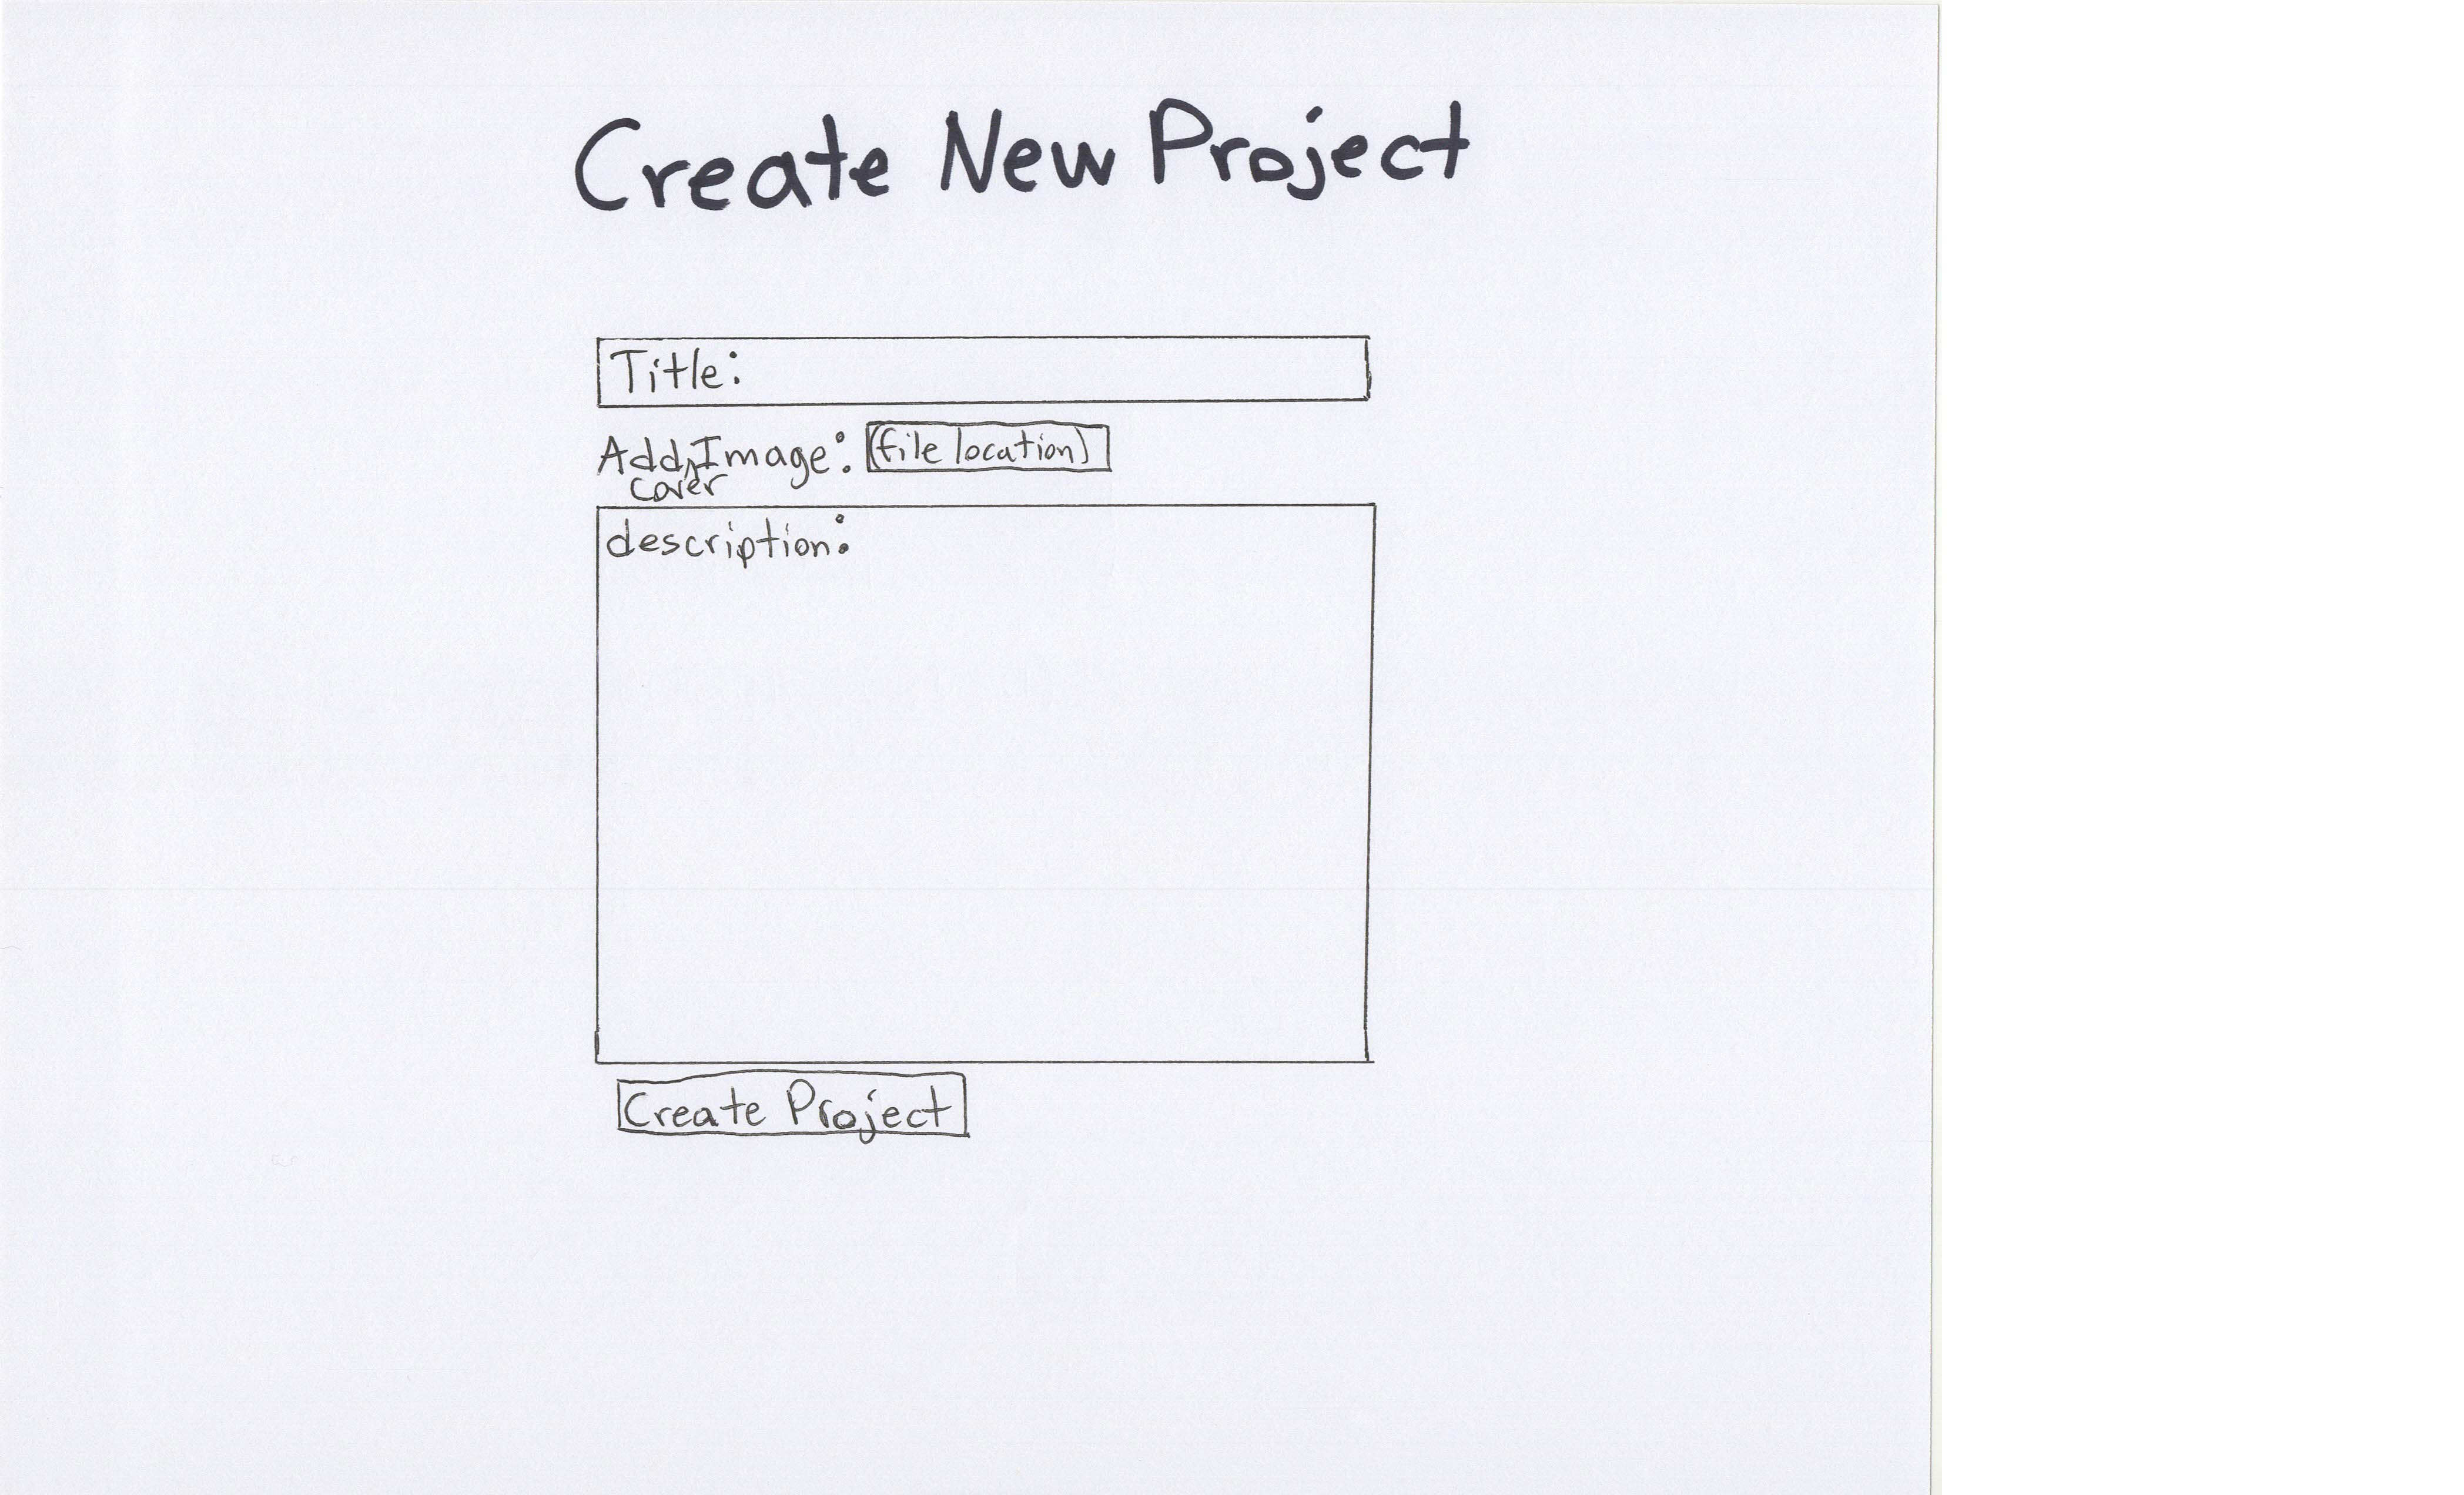 Create New Project
Title:
Add Image: (file location)
cover
description:
Create Project